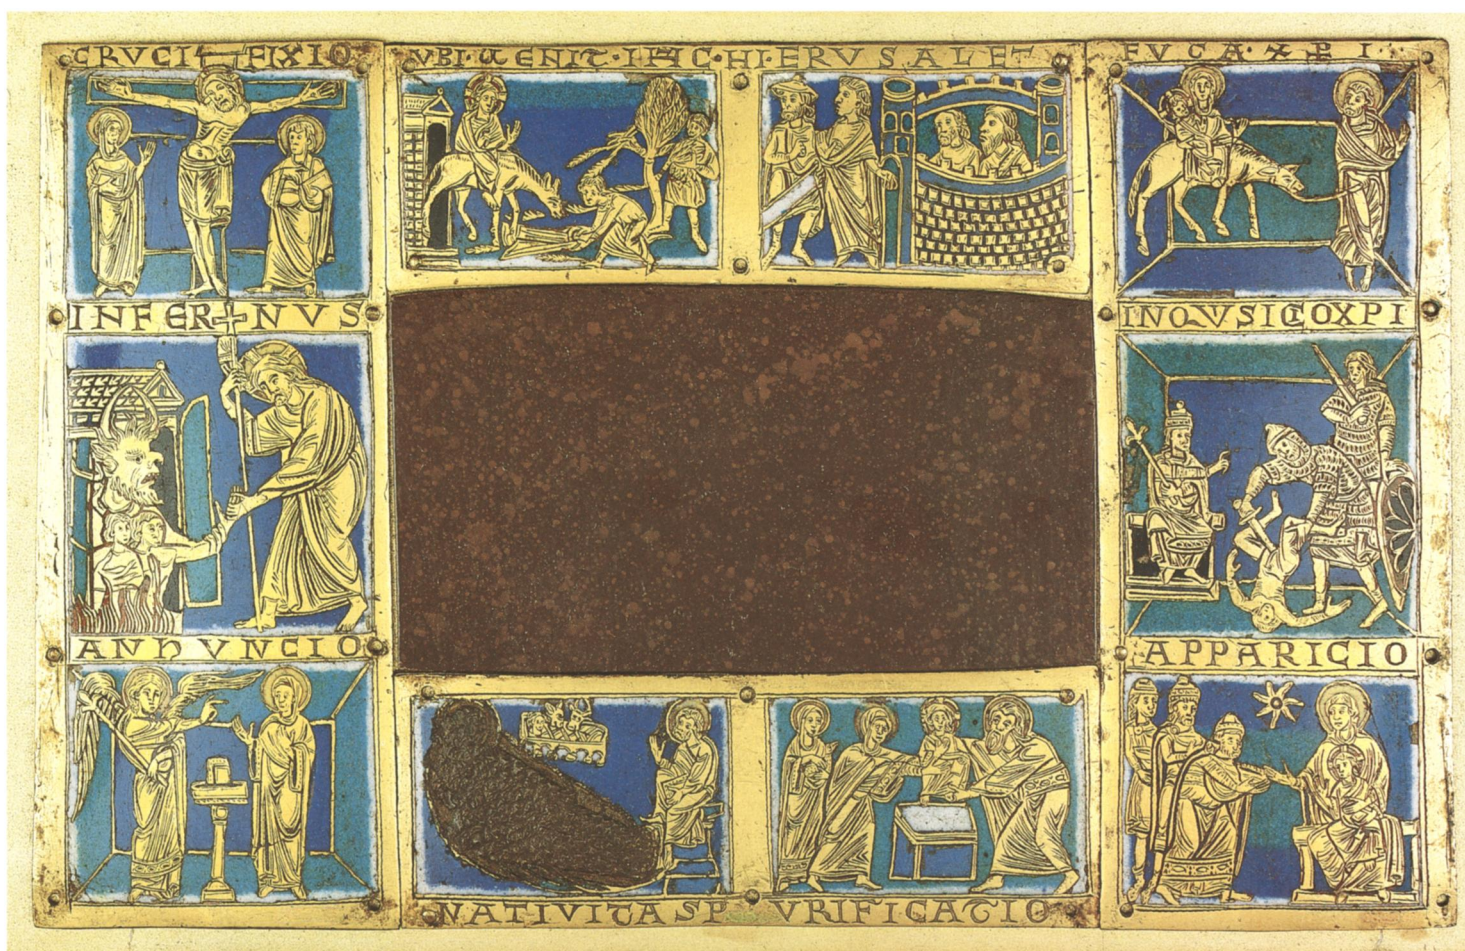 CRUCI FIXIO
UBI·UENIT·IHC·HIERUSALET
FUGA·XPI·
INFERNUS
INQUSICIOXPI
ANNUNCIO
APPARICIO
NATIVITAS PURIFICATIO